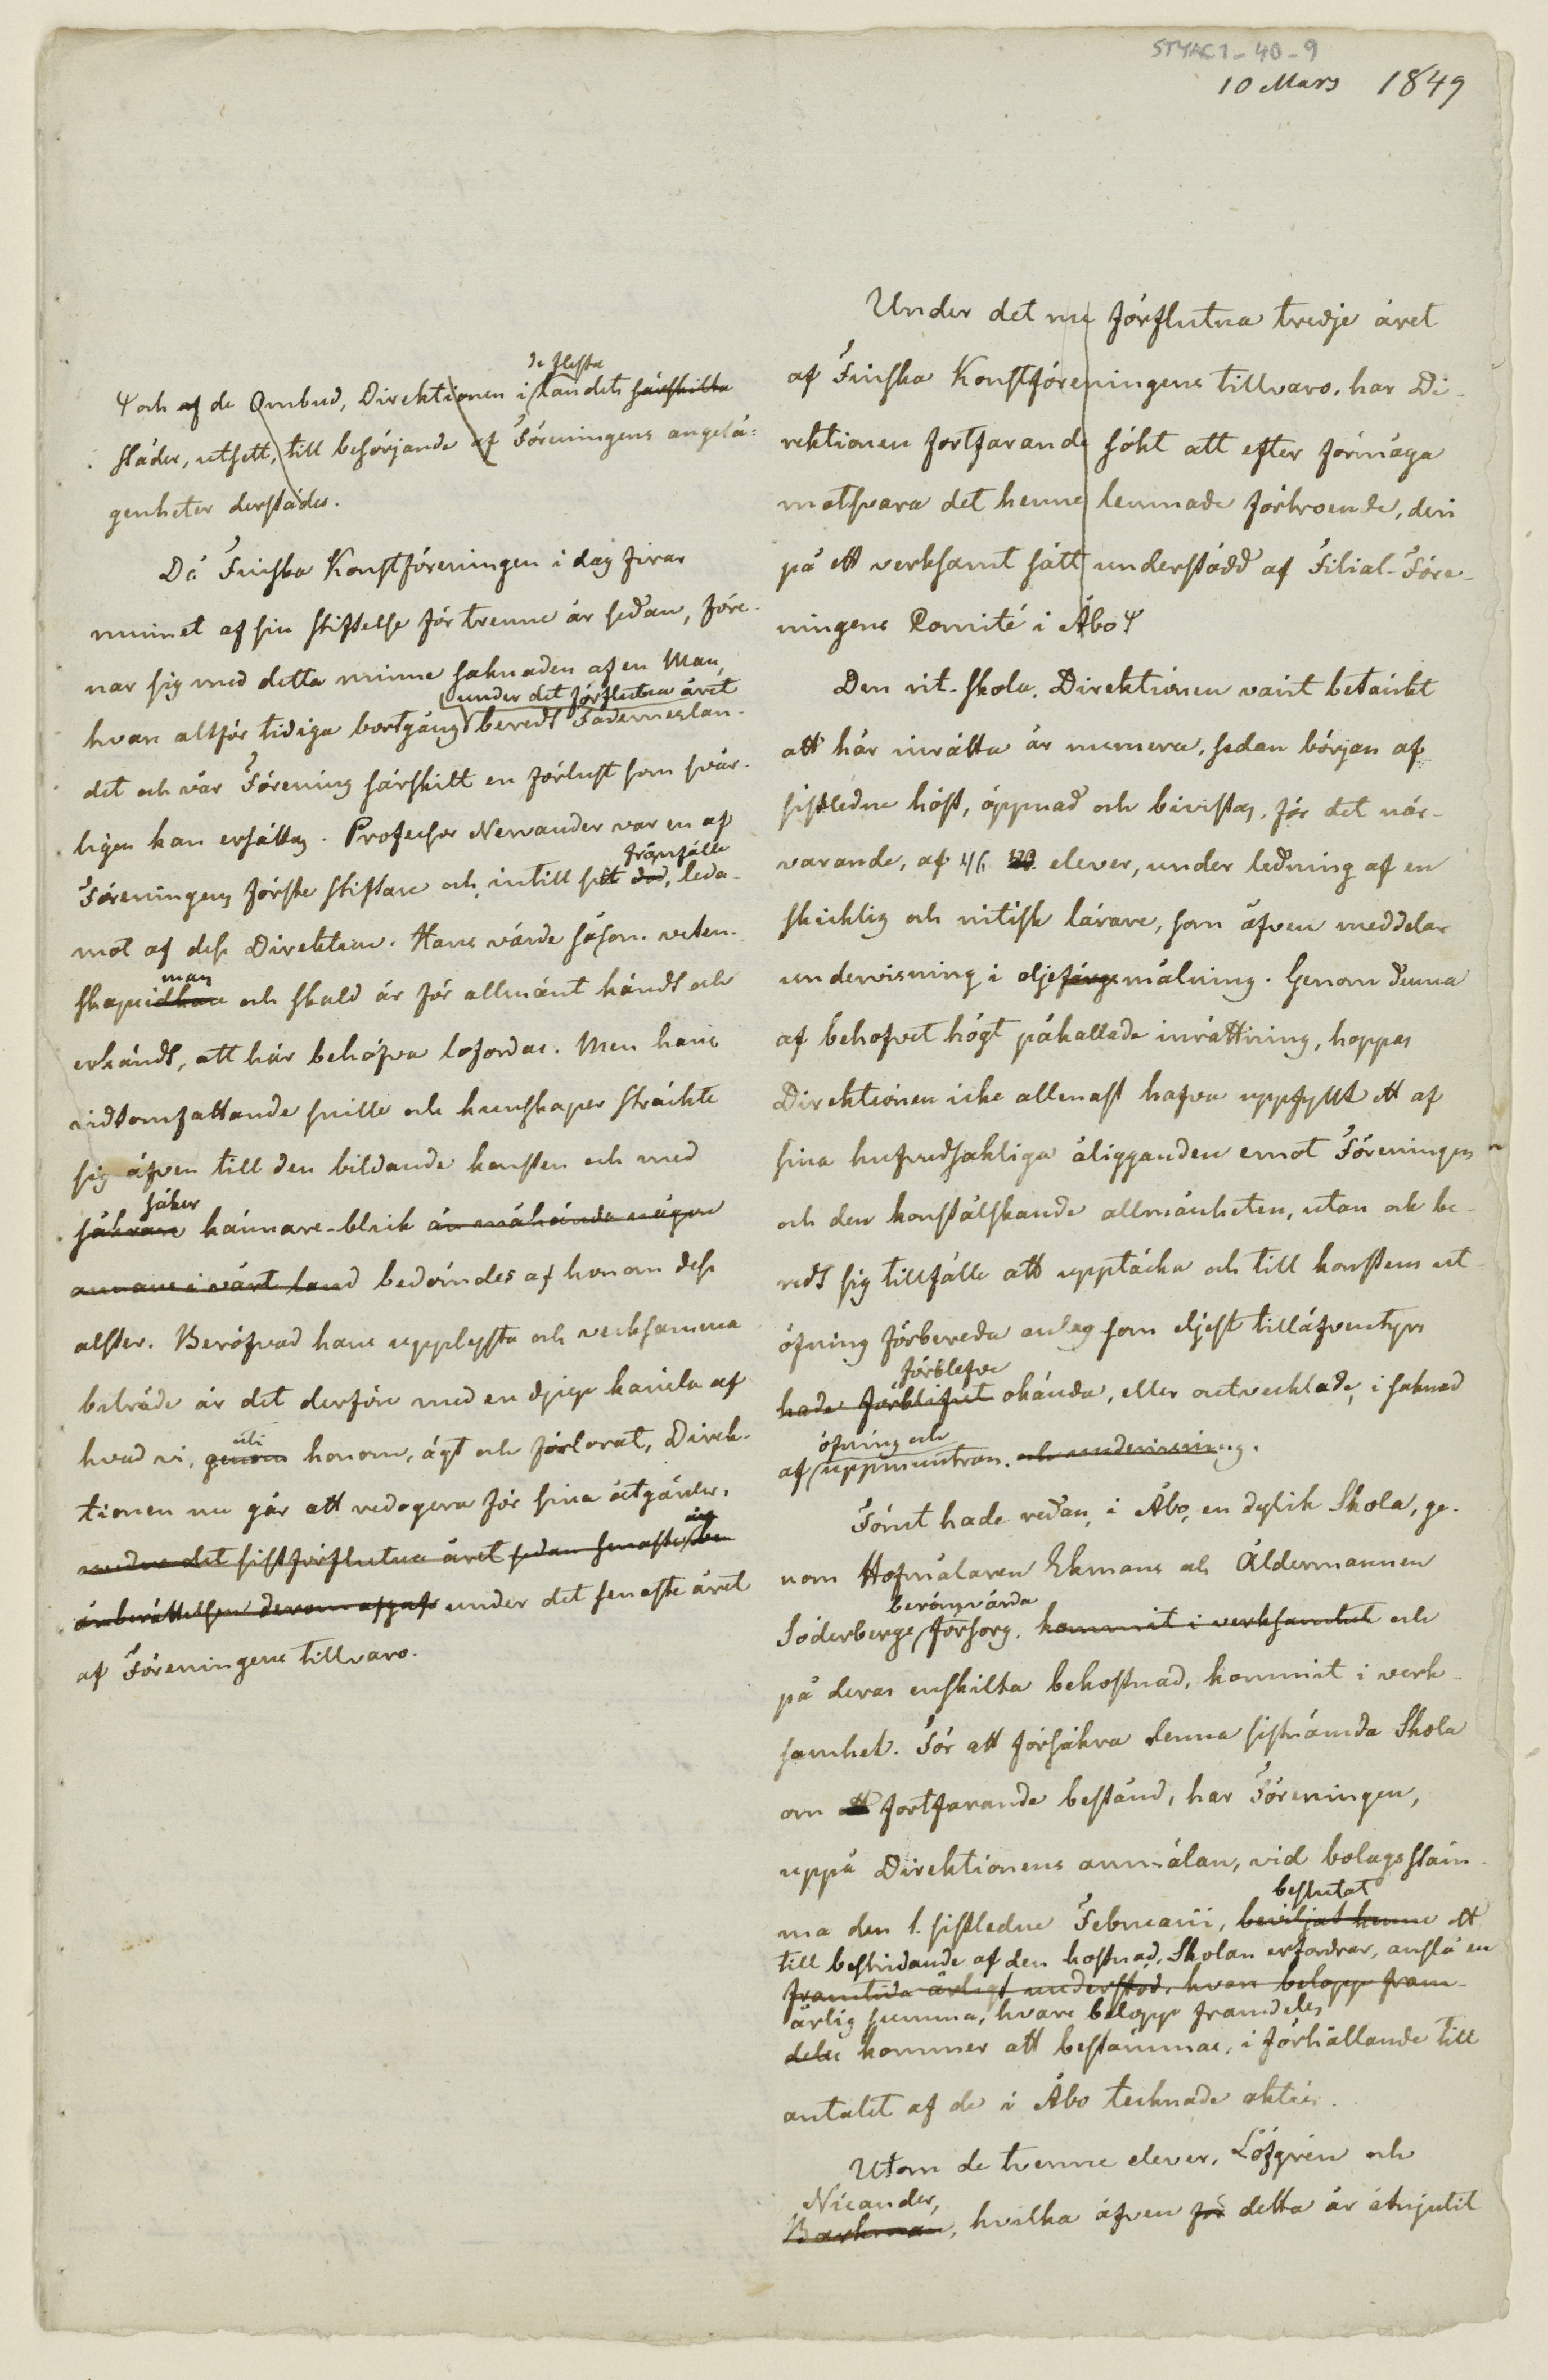 STYAC1-40-9
10 Mars 1849
Under det nu förflutna tredje året
af Finska Konstföreningens tillvaro, har Di-
rektionen fortfarande sökt att efter förmåga
motsvara det henne lemnade förtroende, deri
på ett verksamt sätt understödd af Filial-Före-
ningens Comité i Åbo Ψ
Den rit-skola, Direktionen varit betänkt
att här inrätta är numera, sedan början af
sistledne höst, öppnad och bivistas, för det när-
varande, af 46 120 elever, under ledning af en
skicklig och nitisk lärare, som äfven meddelar
undervisning i oljefärgsmålning. Genom denna
af behofvet högt påkallade inrättning, hoppas
Direktionen icke allenast hafva uppfyllt ett af
sina hufvudsakliga åligganden emot Föreningen
och den konstälskande allmänheten, utan ock be-
redt sig tillfälle att upptäcka och till konstens ut-
öfning förbereda anlag som eljest tilläfventyrs
förblefve
hade förblifvit okända, eller outvecklade, i saknad
öfning och
af uppmuntran. och undervisning.
Förut hade redan, i Åbo, en dylik Skola, ge-
nom Hofmålaren Ekmans och Åldermannen
berömvärda
Söderbergs försorg, kommit i verksamhet och
på deras enskilta bekostnad, kommit i verk-
samhet. För att försäkra denna sistnämda Skola
om ett fortfarande bestånd, har Föreningen,
uppå Direktionens anmälan, vid bolagsstäm-
beslutat
ma den 1. sistledne Februarii, beviljat henne ett
till bestridande af den kostnad, Skolan erfordrar, anslå en
framtida årligt understöd, hvars belopp fram-
årlig summa, hvars belopp framdeles
deles kommer att bestämmas, i förhållande till
antalet af de i Åbo tecknade aktier.
Utom de tvenne elever, Löfgren och
Nicander,
Backman, hvilka äfven för detta år åtnjutit
de flesta
Ψ och af de Ombud, Direktionen i landets särskilta
städer, utsett, till besörjande af Föreningens angelä-
genheter derstädes.
Då Finska Konstföreningen i dag firar
minnet af sin stiftelse för trenne år sedan, före-
nar sig med detta minne saknaden af en Man,
under det förflutna året
hvars alltför tidiga bortgång beredt Fäderneslan-
det och vår Förening särskilt en förlust som svår-
ligen kan ersättas. Professor Nervander var en af
frånfälle
Föreningens förste stiftare och, intill sitt död, leda-
mot af dess Direktion. Hans värde såsom veten-
man
skapsidkare och skald är för allmänt kändt och
erkändt, att här behöfva lofordas. Men hans
vidtomfattande snille och kunskaper sträckte
sig äfven till den bildande konsten och med
säker
säkrare kännare-blick än måhända någon
annans i vårt land bedömdes af honom dess
alster. Beröfvad hans upplysta och verksamma
biträde är det derföre med en djup känsla af
uti
hvad vi, genom honom, ägt och förlorat, Direk-
tionen nu går att redogöra för sina åtgärder,
års
under det sist förflutna året sedan senaste be
årsberättelsen derom afgafs under det senaste året
af Föreningens tillvaro.